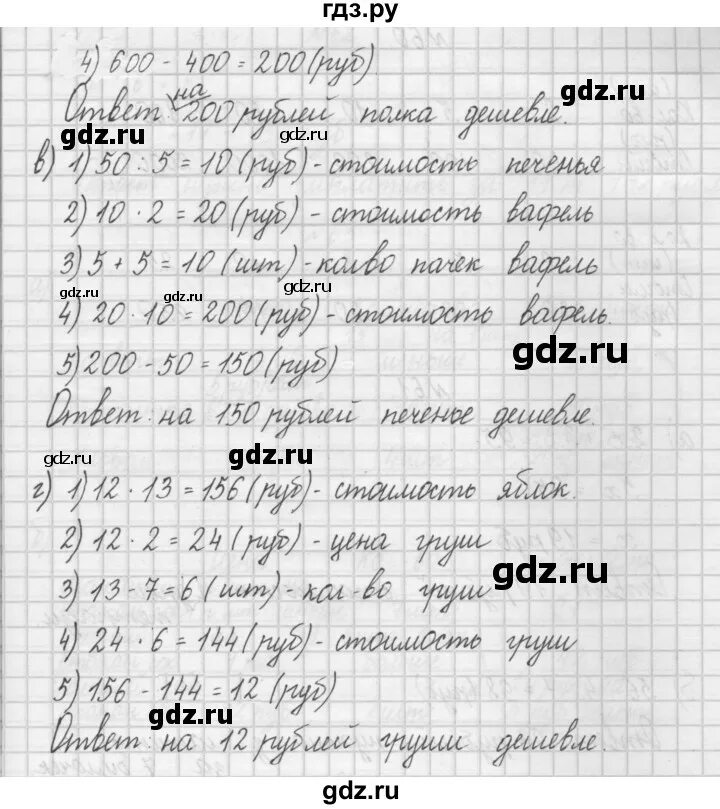 гдз.ру
4) 600 - 400 = 200 (руб)
Ответ: на 200 рублей полка дешевле.
gdz.ru gdz.ru
в) 1) 50 : 5 = 10 (руб) - стоимость печенья
2) 10 · 2 = 20 (руб) - стоимость вафель
3) 5 + 5 = 10 (шт) - колво пачек вафель
gdz.ru gdz.ru gdz.ru
4) 20 · 10 = 200 (руб) - стоимость вафель.
gdz.ru
5) 200 - 50 = 150 (руб)
Ответ: на 150 рублей печенье дешевле.
gdz.ru gdz.ru
г) 1) 12 · 13 = 156 (руб) - стоимость яблок.
2) 12 · 2 = 24 (руб) - цена груш
gdz.ru
3) 13 - 7 = 6 (шт) - кол-во груш
4) 24 · 6 = 144 (руб) - стоимость груш
5) 156 - 144 = 12 (руб)
gdz.ru
Ответ: на 12 рублей груши дешевле.
gdz.ru